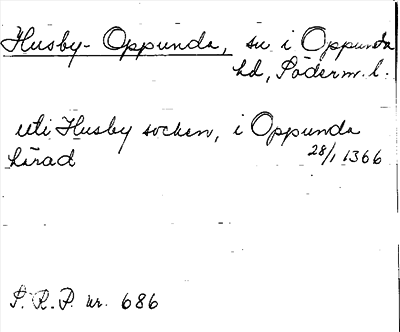 Husby-Oppunda, sn i Oppunda
hd, Söderm. l.
uti Husby socken, i Oppunda
härad 28/1 1366
S.R.P. nr. 686